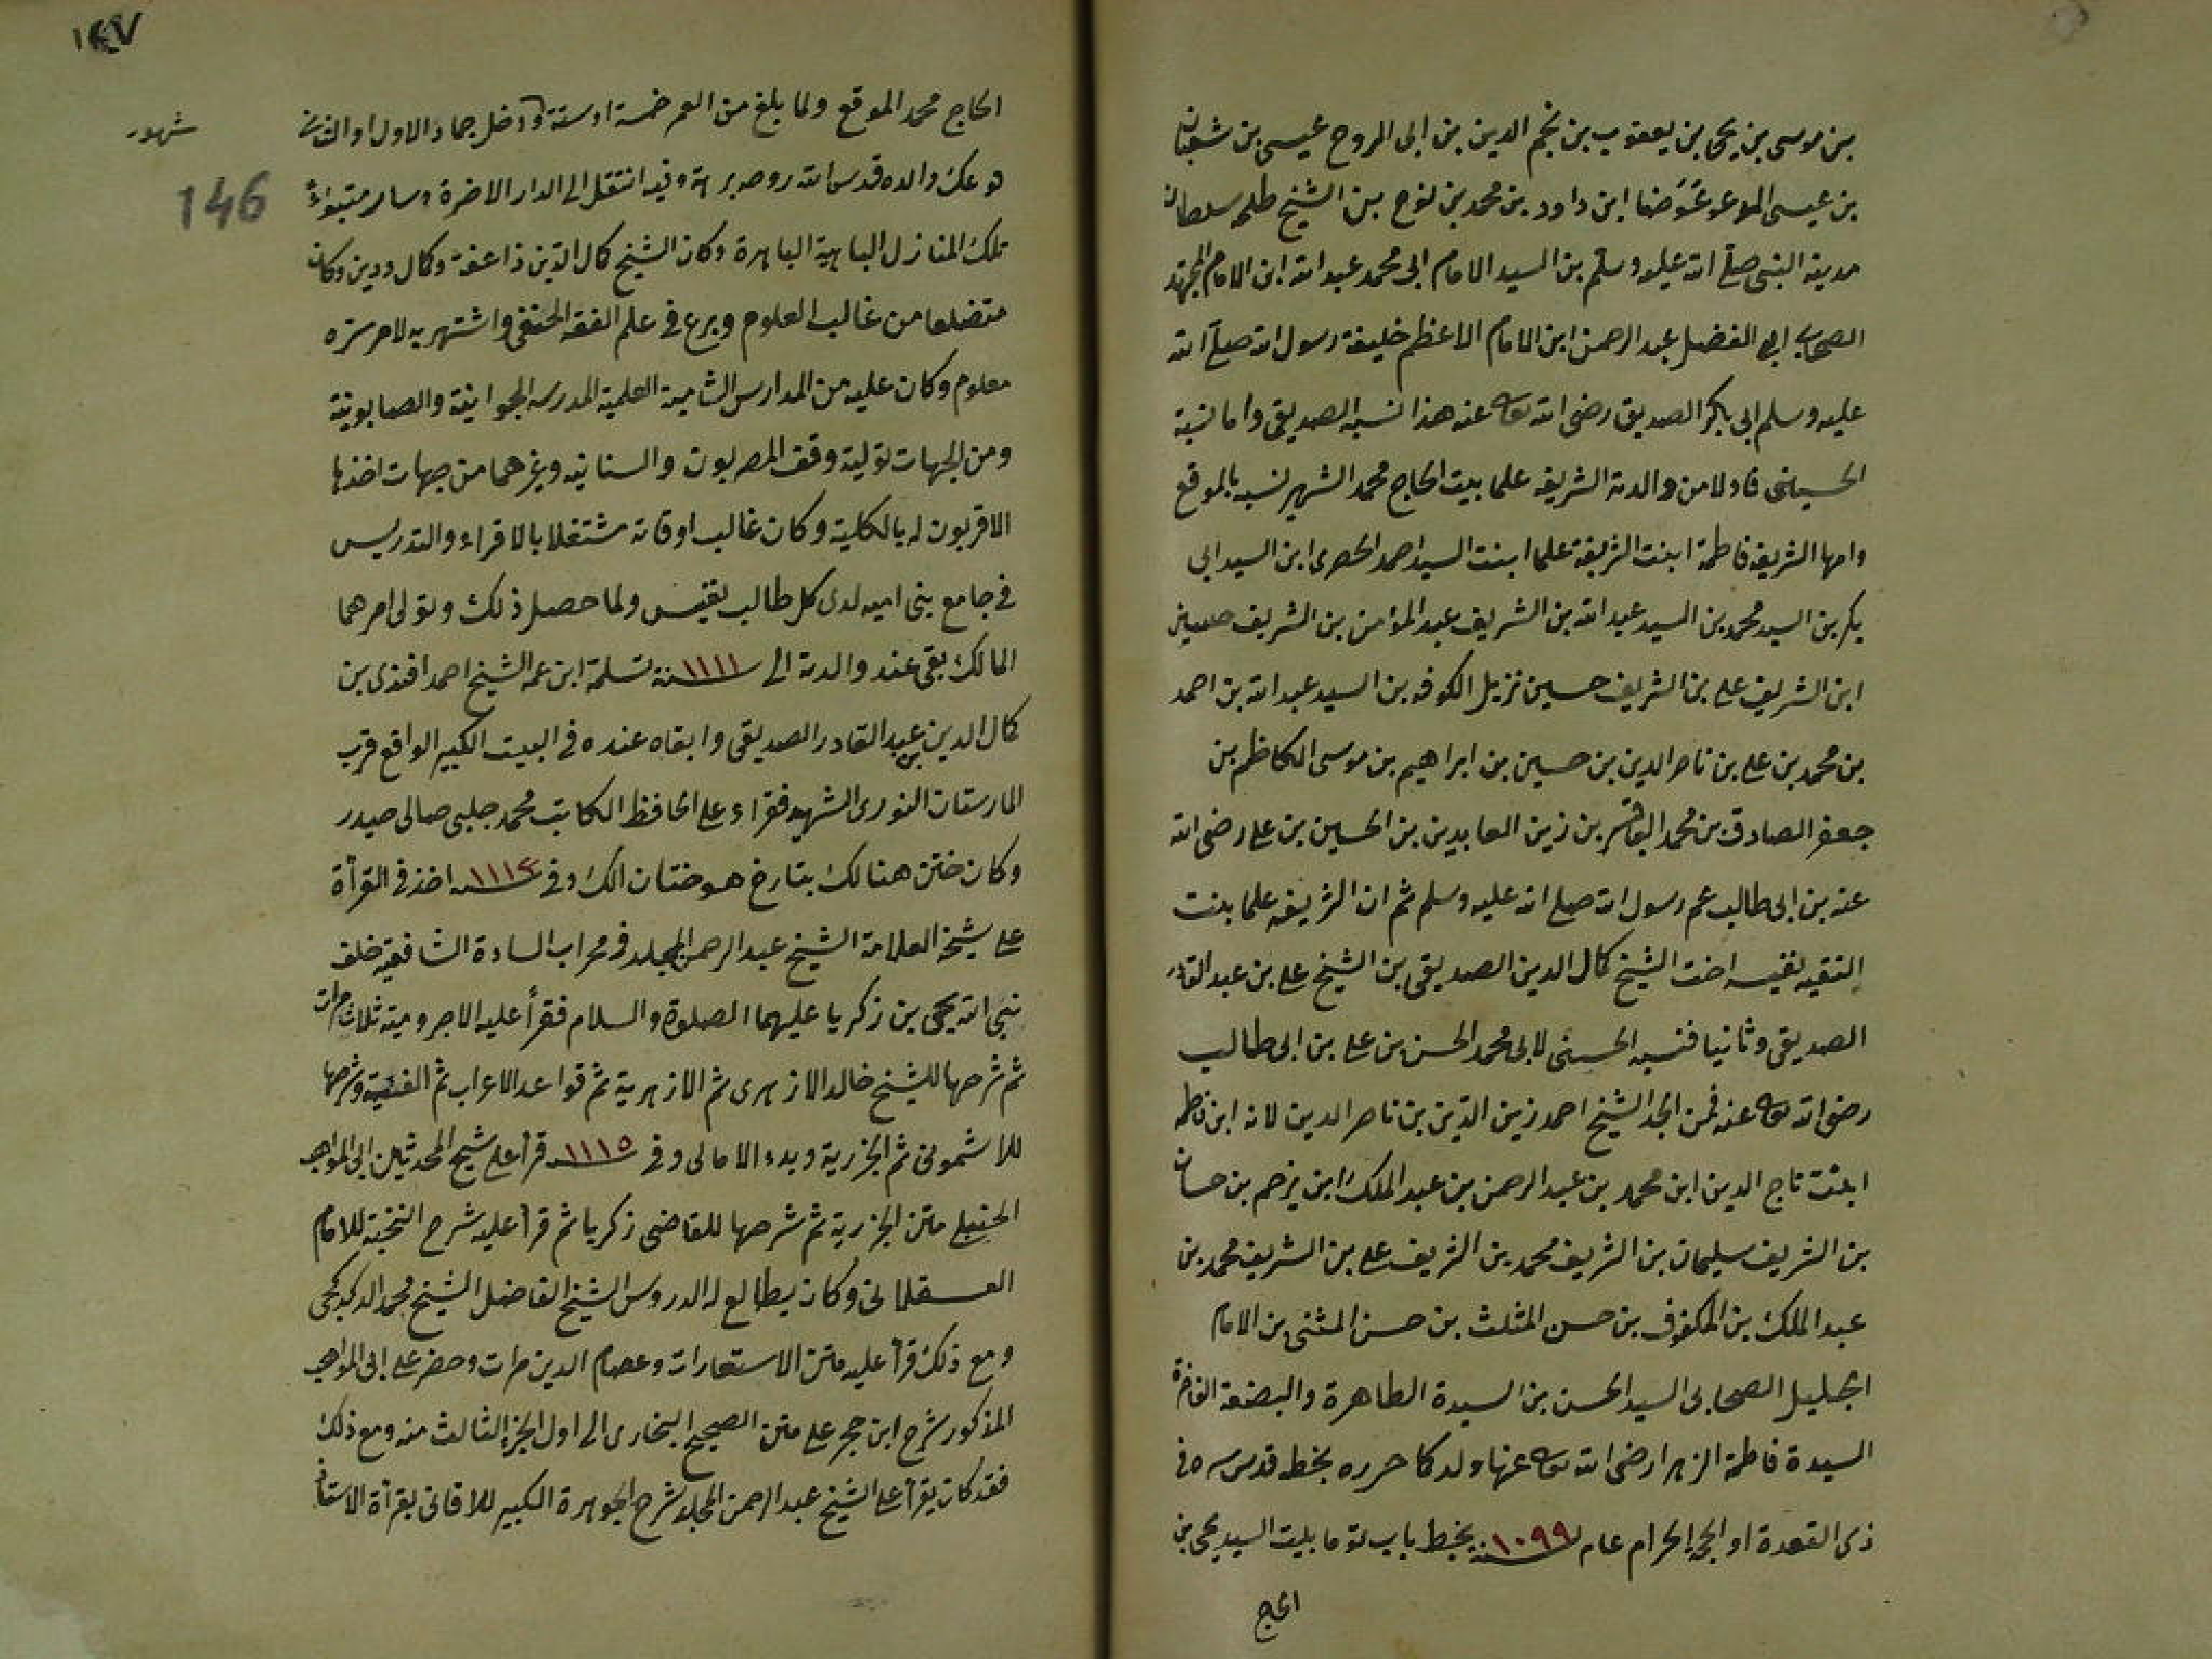 بن موسى بن يحيى بن يعقوب بن نجم الدين بن ابى الروح عيسى بن شعبان
بن عيسى المدعو عَوَضنا ابن داود بن محمد بن نوح بن الشيخ طلحه سلطان
مدينه النبى صلى الله عليه وسلم بن السيد الامام ابى محمد عبد الله ابن الامام المجتهد
الصحابى ابى الفضل عبد الرحمن ابن الامام الاعظم خليفة رسول الله صلى الله
عليه وسلم ابى بكر الصديق رضى الله تعالى عنه هذا نسبه الصديقى واما نسبة
الحسينى فاولا من والدته الشريفه علما بيت الحاج محمد الشهير نسبه بالموقع
وامها الشريفه فاطمة ابنت الشريفة علما ابنت السيد احمد الحصرى ابن السيد ابى
بكر بن السيد محمد بن السيد عبد الله بن الشريف عبد المؤمن بن الشريف حسين
ابن الشريف على بن الشريف حسين نزيل الكوفه بن السيد عبد الله بن احمد
بن محمد بن على بن ناصر الدين بن حسين بن ابراهيم بن موسى الكاظم بن
جعفر الصادق بن محمد الباقر بن زين العابدين بن الحسين بن على رضى الله
عنه بن ابى طالب عم رسول الله صلى الله عليه وسلم ثم ان الشريفه علما بنت
التقيه نفيسه اخت الشيخ كمال الدين الصديقى بن الشيخ على بن عبد القادر
الصديقى وثانيا فنسبه الحسنى لابى محمد الحسن بن على بن ابى طالب
رضى الله تعالى عنه فمن الجد الشيخ احمد زين الدين بن ناصر الدين لانه ابن فاطمه
ابنت تاج الدين ابن محمد بن عبد الرحمن بن عبد الملك ابن يزحم بن حسان
بن الشريف سليمان بن الشريف محمد بن الشريف على بن الشريف محمد بن
عبد الملك بن المكفوف بن حسن المثلث بن حسن المثنى بن الامام
الجليل الصحابى السيد الحسن بن السيدة الطاهرة والبضعة الفاخرة
السيدة فاطمة الزهرا رضى الله تعالى عنها ولد كما حرره بخطه قدس سره فى
ذى القعدة او الحجه الحرام عام سنة ١٠٩٩ بخط باب توما بليت السيد يحيى بن
الحاج
١٤٧
شهور
146
الحاج محمد الموقع ولما بلغ من العمر خمسة او ستة ودخل جماد الاول او الثانى
توعك والده قدس الله روحه برهة وفيه انتقل الى الدار الاخرة وسار متبؤءً
تلك المنازل الباهية الباهرة وكان الشيخ كمال الدين ذا عفة وكمال ودين وكان
متضلعا من غالب العلوم وبرع فى علم الفقه الحنفى واشتهر به لامر سره
معلوم وكان عليه من المدارس الشاميه العلمية المدرسه الجوانية والصابونية
ومن الجهات تولية وقف المصريون والسنانيه وغيرهما من جهات اخذها
الاقربون له بالكلية وكان غالب اوقاته مشتغلا بالاقراء والتدريس
فى جامع بنى اميه لدى كل طالب نفيس ولما حصل ذلك وتولى امرهما
المالك بقى عند والدته الى سنة ١١١١ تسلمه ابن عمه الشيخ احمد افندى بن
كمال الدين بن عبد القادر الصديقى وابقاه عنده فى البيت الكبير الواقع قرب
المارستان النورى الشهير فقراء على الحافظ الكاتب محمد جلبى صالى حيدر
وكان ختن هنالك بتاريخ هو ختان الك وفى سنة ١١١٤ اخذ فى القرأة
على شيخه العلامة الشيخ عبد الرحمن المجلد فى محراب السادة الشافعيه خلف
نبى الله يحيى بن زكريا عليهما الصلوة والسلام فقرأ عليه الاجروميته ثلاث مرات
ثم شرحها للشيخ خالد الازهرى ثم الازهرية ثم قواعد الاعراب ثم الفية وشرحها
للاشمونى ثم الجزرية وبدء الامالى وفى سنة ١١١٥ قرأ على شيخ المحدثين ابى المواهب
الحنبلى متن الجزرية ثم شرحها للقاضى زكريا ثم قرأ عليه شرح النخبة للامام
العسقلانى وكان يطالع له الدروس الشيخ الفاضل الشيخ محمد الدكدكجى
ومع ذلك قرأ عليه متن الاستعارات وعصام الدين مرات وحضر على ابى المواهب
المذكور شرح ابن حجر على متن الصحيح البخارى الى اول الجزء الثالث منه ومع ذلك
فقد كان يقرأ على الشيخ عبد الرحمن المجلد شرح الجوهرة الكبير للاقانى بقرأة الاستاذ